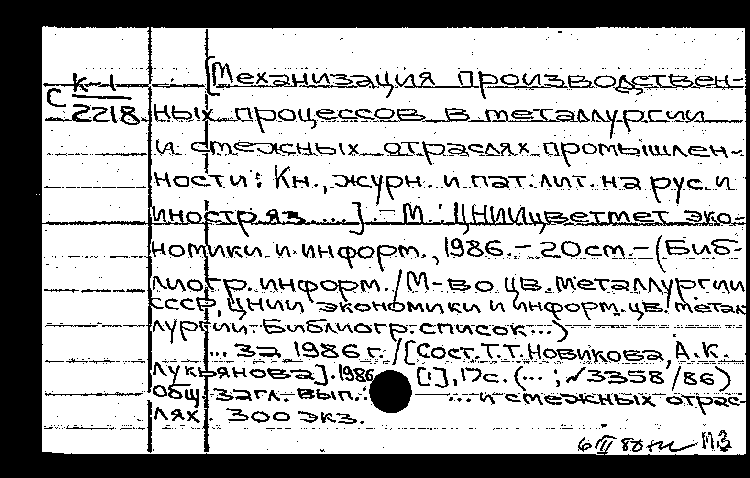 [Механизация производствен-
С К-1/2218 ных процессов в металлургии
и смежных отраслях промышлен-
ности: Кн., журн. и пат. лит. на рус. и
иностр. яз. ....]. - М.: ЦНИИцветмет эко-
номики и информ., 1986. - 20см. - (Биб-
лиогр. информ. / М-во цв. металлургии
СССР, ЦНИИ экономики и информ. цв. метал
лургии. Библиогр. список...)
... за 1986 г. / [Сост. Т.Т. Новикова, А.К.
Лукьянова]. 1986 [1], 17с. (... ; √3358/86)
Общ. загл. вып.: ... и смежных отрас-
лях. 300 экз.
М3